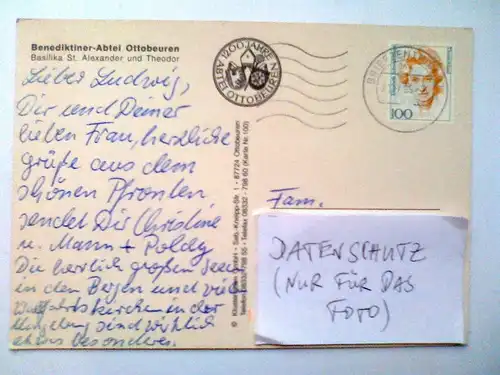 Benediktiner-Abtei Ottobeuren
Basilika St. Alexander und Theodor
Lieber Ludwig,
Dir und Deiner
lieben Frau, herzliche
grüße aus dem
schönen Pfronten,
sendet Dir Christine
u. Mann + Poldy
Die herlich großen Seen
in den Bergen und viele
Wallfahrtskirchen in der
Umgebung sind wirklich
etwas besonderes.
1200 JAHRE
ABTEI OTTOBEUREN
100
Fam.
DATENSCHUTZ
(NUR FÜR DAS
FOTO)
Seb.-Kneipp-Str. 1 · 87724 Ottobeuren
Telefax 08332 - 798 60 (Karte Nr. 100)